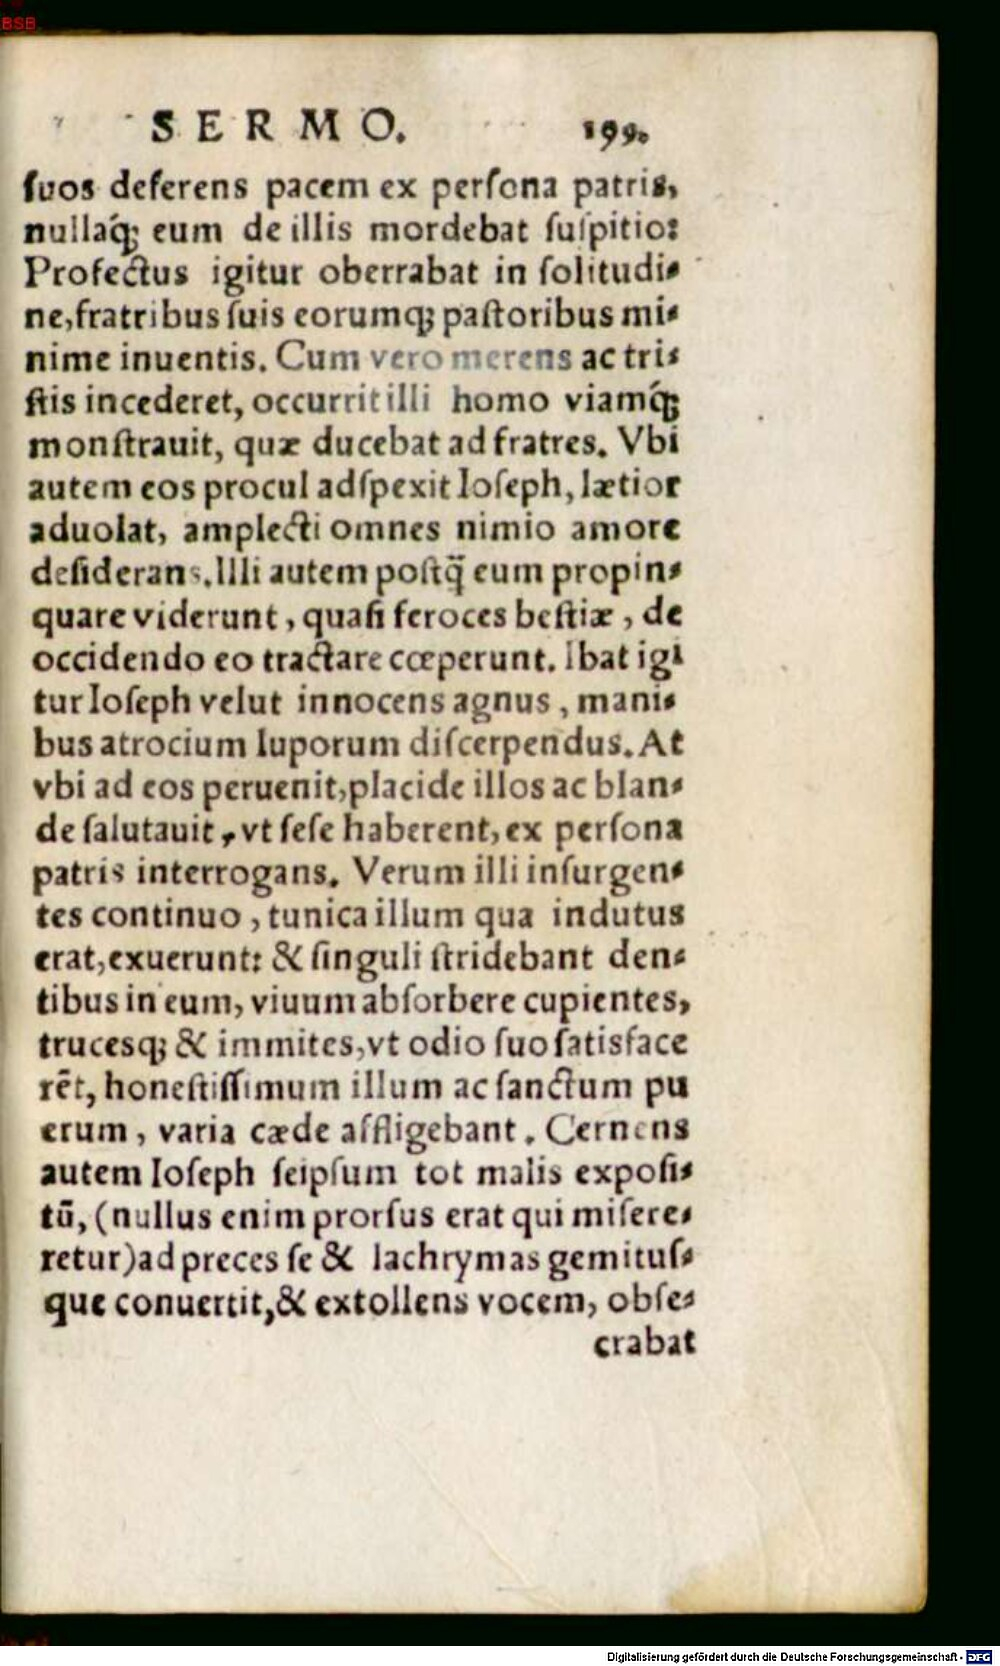 BSB
SERMO. 199.
ſuos deferens pacem ex perſona patris,
nullaq́; eum de illis mordebat ſuſpitio:
Profectus igitur oberrabat in ſolitudi-
ne, fratribus ſuis eorumq; paſtoribus mi-
nime inuentis. Cum vero merens ac tri-
ſtis incederet, occurrit illi homo viamq́;
monſtrauit, quæ ducebat ad fratres. Vbi
autem eos procul adſpexit Ioſeph, lætior
aduolat, amplecti omnes nimio amore
deſiderans. Illi autem poſtq̃ eum propin-
quare viderunt, quaſi feroces beſtiæ, de
occidendo eo tractare cœperunt. Ibat igi
tur Ioſeph velut innocens agnus, mani-
bus atrocium luporum diſcerpendus. At
vbi ad eos peruenit, placide illos ac blan-
de ſalutauit, vt ſeſe haberent, ex perſona
patris interrogans. Verum illi inſurgen-
tes continuo, tunica illum qua indutus
erat, exuerunt: & ſinguli ſtridebant den-
tibus in eum, viuum abſorbere cupientes,
trucesq; & immites, vt odio ſuo ſatisface
rēt, honeſtiſſimum illum ac ſanctum pu
erum, varia cæde affligebant. Cernens
autem Ioſeph ſeipſum tot malis expoſi-
tū, (nullus enim prorſus erat qui miſere-
retur) ad preces ſe & lachrymas gemituſ-
que conuertit, & extollens vocem, obſe-
crabat
Digitalisierung gefördert durch die Deutsche Forschungsgemeinschaft - DFG